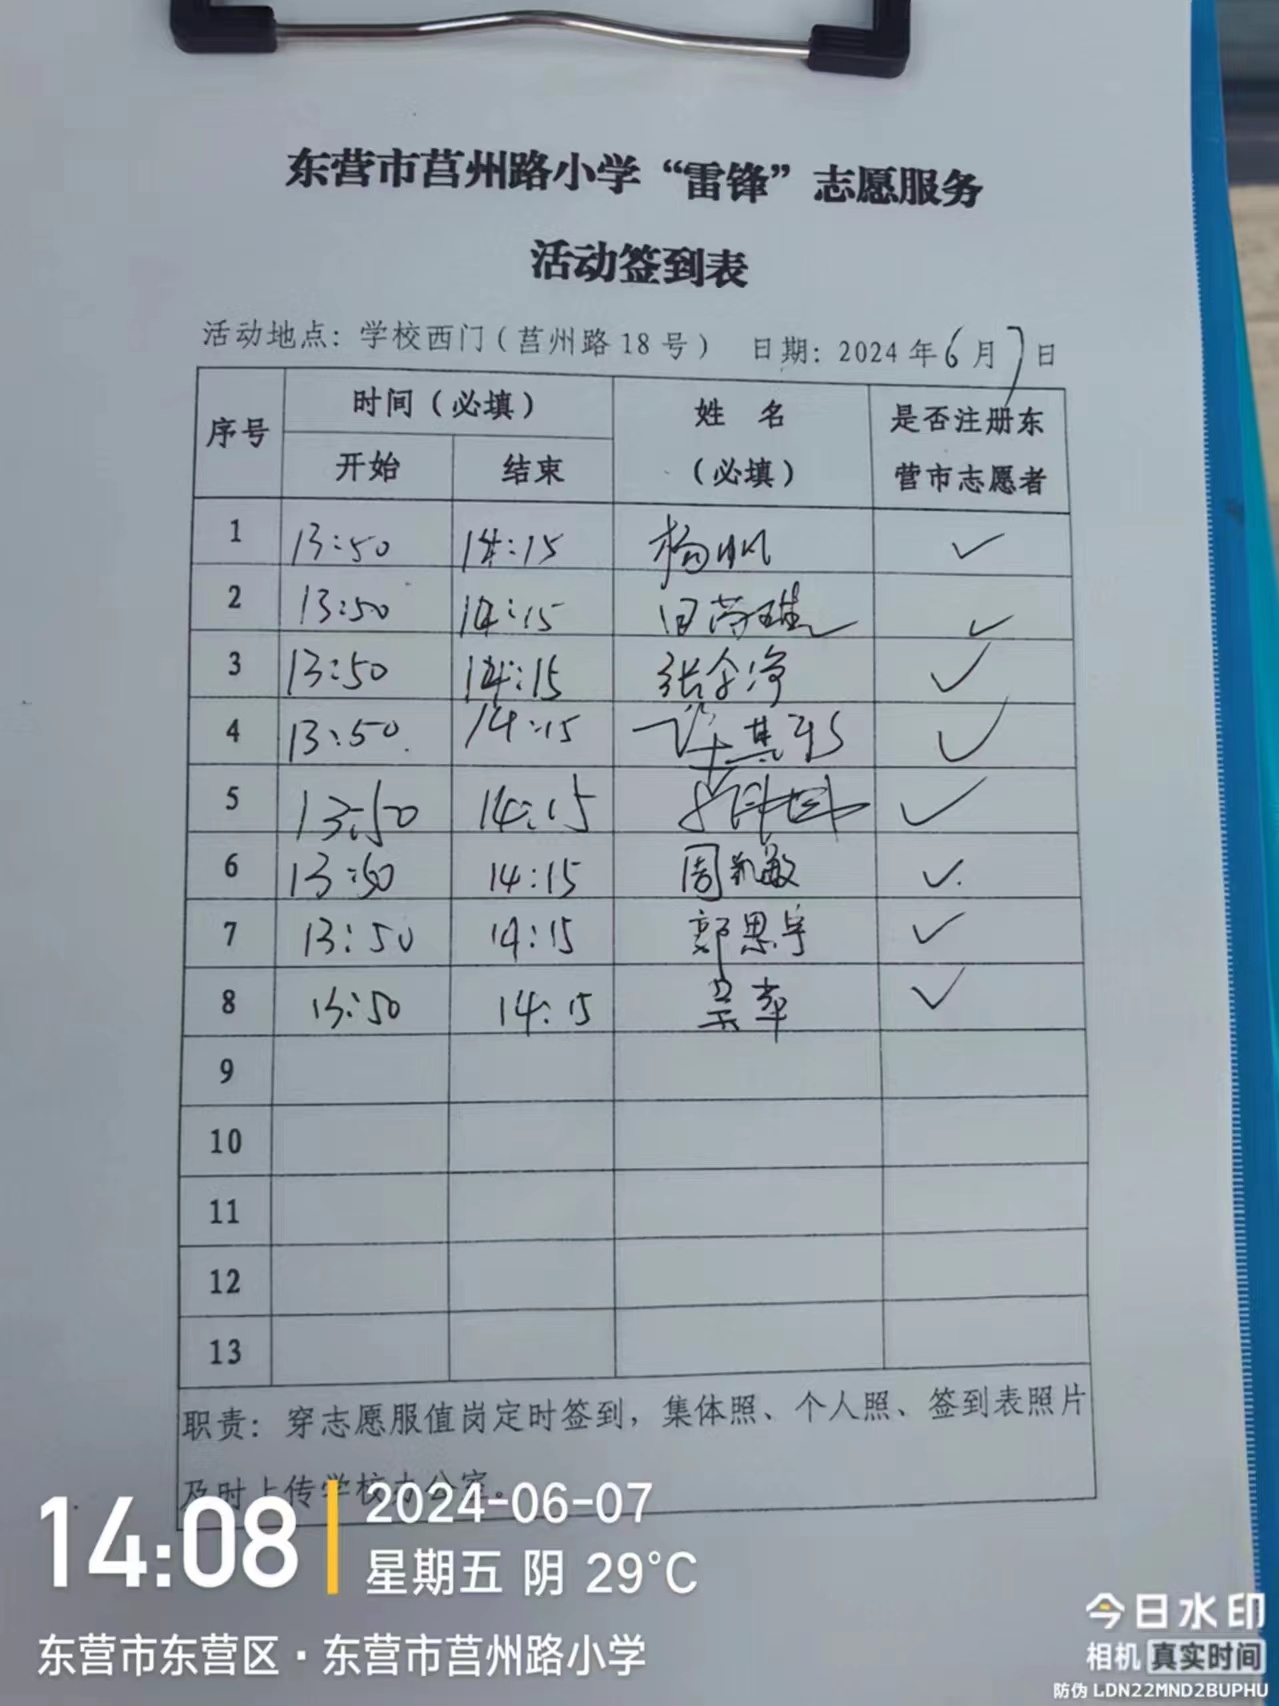 东营市莒州路小学“雷锋”志愿服务
活动签到表
活动地点：学校西门（莒州路18号） 日期：2024年6月7日
序号 时间（必填） 姓 名 是否注册东
开始 结束 （必填） 营市志愿者
1 13:50 14:15 杨帆 ✓
2 13:50 14:15 ✓
3 13:50 14:15 ✓
4 13:50 14:15 ✓
5 13:50 14:15 ✓
6 13:50 14:15 周凯敏 ✓
7 13:50 14:15 郭思宇 ✓
8 13:50 14:15 ✓
9
10
11
12
13
职责：穿志愿服值岗定时签到，集体照、个人照、签到表照片
及时上传学校办公室。
14:08 2024-06-07
星期五 阴 29°C
东营市东营区·东营市莒州路小学
今日水印
相机 真实时间
防伪 LDN22MND2BUPHU